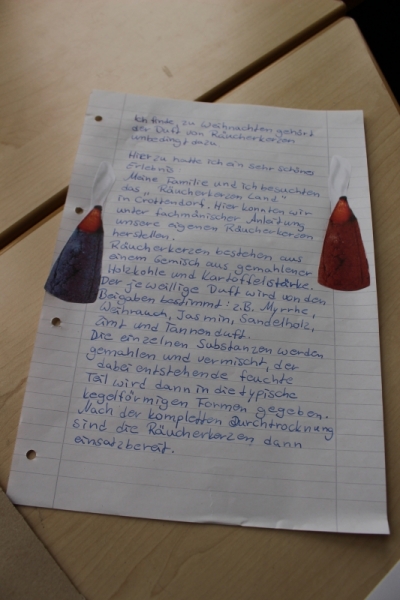 Ich finde, zu Weihnachten gehört
der Duft von Räucherkerzen
unbedingt dazu.
Hierzu hatte ich ein sehr schönes
Erlebnis
Meine Familie und ich besuchten
das „Räucherkerzen Land"
in Crottendorf. Hier konnten wir
unter fachmänischer Anleitung
unsere eigenen Räucherkerzen
herstellen.
Räucherkerzen bestehen aus
einem Gemisch aus gemahlener
Holzkohle und Kartoffelstärke.
Der jeweilige Duft wird von den
Beigaben bestimmt: z.B. Myrrhe,
Weihrauch, Jasmin, Sandelholz,
Zimt und Tannenduft.
Die einzelnen Substanzen werden
gemahlen und vermischt, der
dabei entstehende feuchte
Teil wird dann in die typische
kegelförmigen Formen gegeben.
Nach der kompletten Durchtrocknung
sind die Räucherkerzen dann
einsatzbereit.